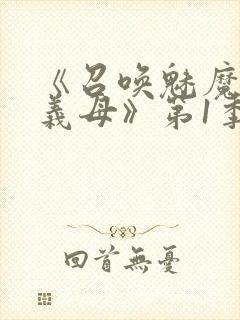 《召喚魅魔
義母》第1季
回首無憂